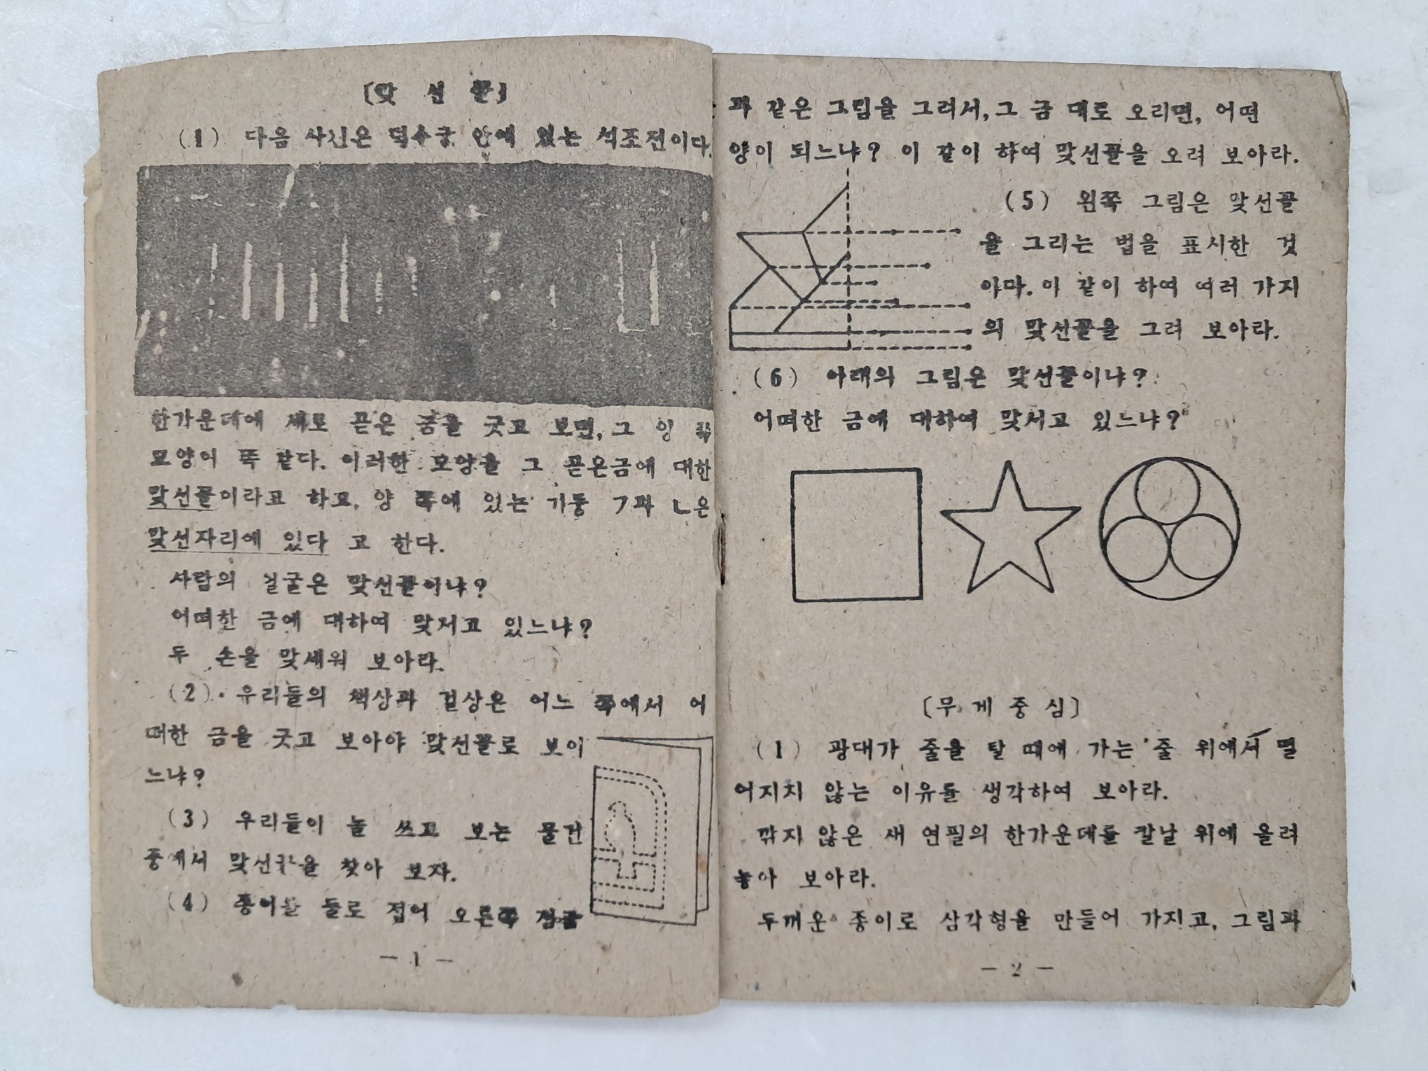 [맞 선 꼴]
(1) 다음 사진은 덕수궁 안에 있는 석조전이다.
한가운데에 세로 곧은 금을 긋고 보면, 그 양 쪽
모양이 똑 같다. 이러한 모양을 그 곧은금에 대한
맞선꼴이라고 하고, 양 쪽에 있는 기둥 ㄱ과 ㄴ은
맞선자리에 있다 고 한다.
사람의 얼굴은 맞선꼴이냐?
어떠한 금에 대하여 맞서고 있느냐?
두 손을 맞세워 보아라.
(2) 우리들의 책상과 걸상은 어느 쪽에서 어
떠한 금을 긋고 보아야 맞선꼴로 보이
느냐?
(3) 우리들이 늘 쓰고 보는 물건
중에서 맞선꼴을 찾아 보자.
(4) 종이를 둘로 접어 오른쪽
— 1 —
과 같은 그림을 그려서, 그 금 대로 오리면, 어떤
양이 되느냐? 이 같이 하여 맞선꼴을 오려 보아라.
(5) 왼쪽 그림은 맞선꼴
을 그리는 법을 표시한 것
이다. 이 같이 하여 여러 가지
의 맞선꼴을 그려 보아라.
(6) 아래의 그림은 맞선꼴이냐?
어떠한 금에 대하여 맞서고 있느냐?
[무 게 중 심]
(1) 광대가 줄을 탈 때에 가는 줄 위에서 떨
어지지 않는 이유를 생각하여 보아라.
깎지 않은 새 연필의 한가운데를 칼날 위에 올려
놓아 보아라.
두꺼운 종이로 삼각형을 만들어 가지고, 그림과
— 2 —